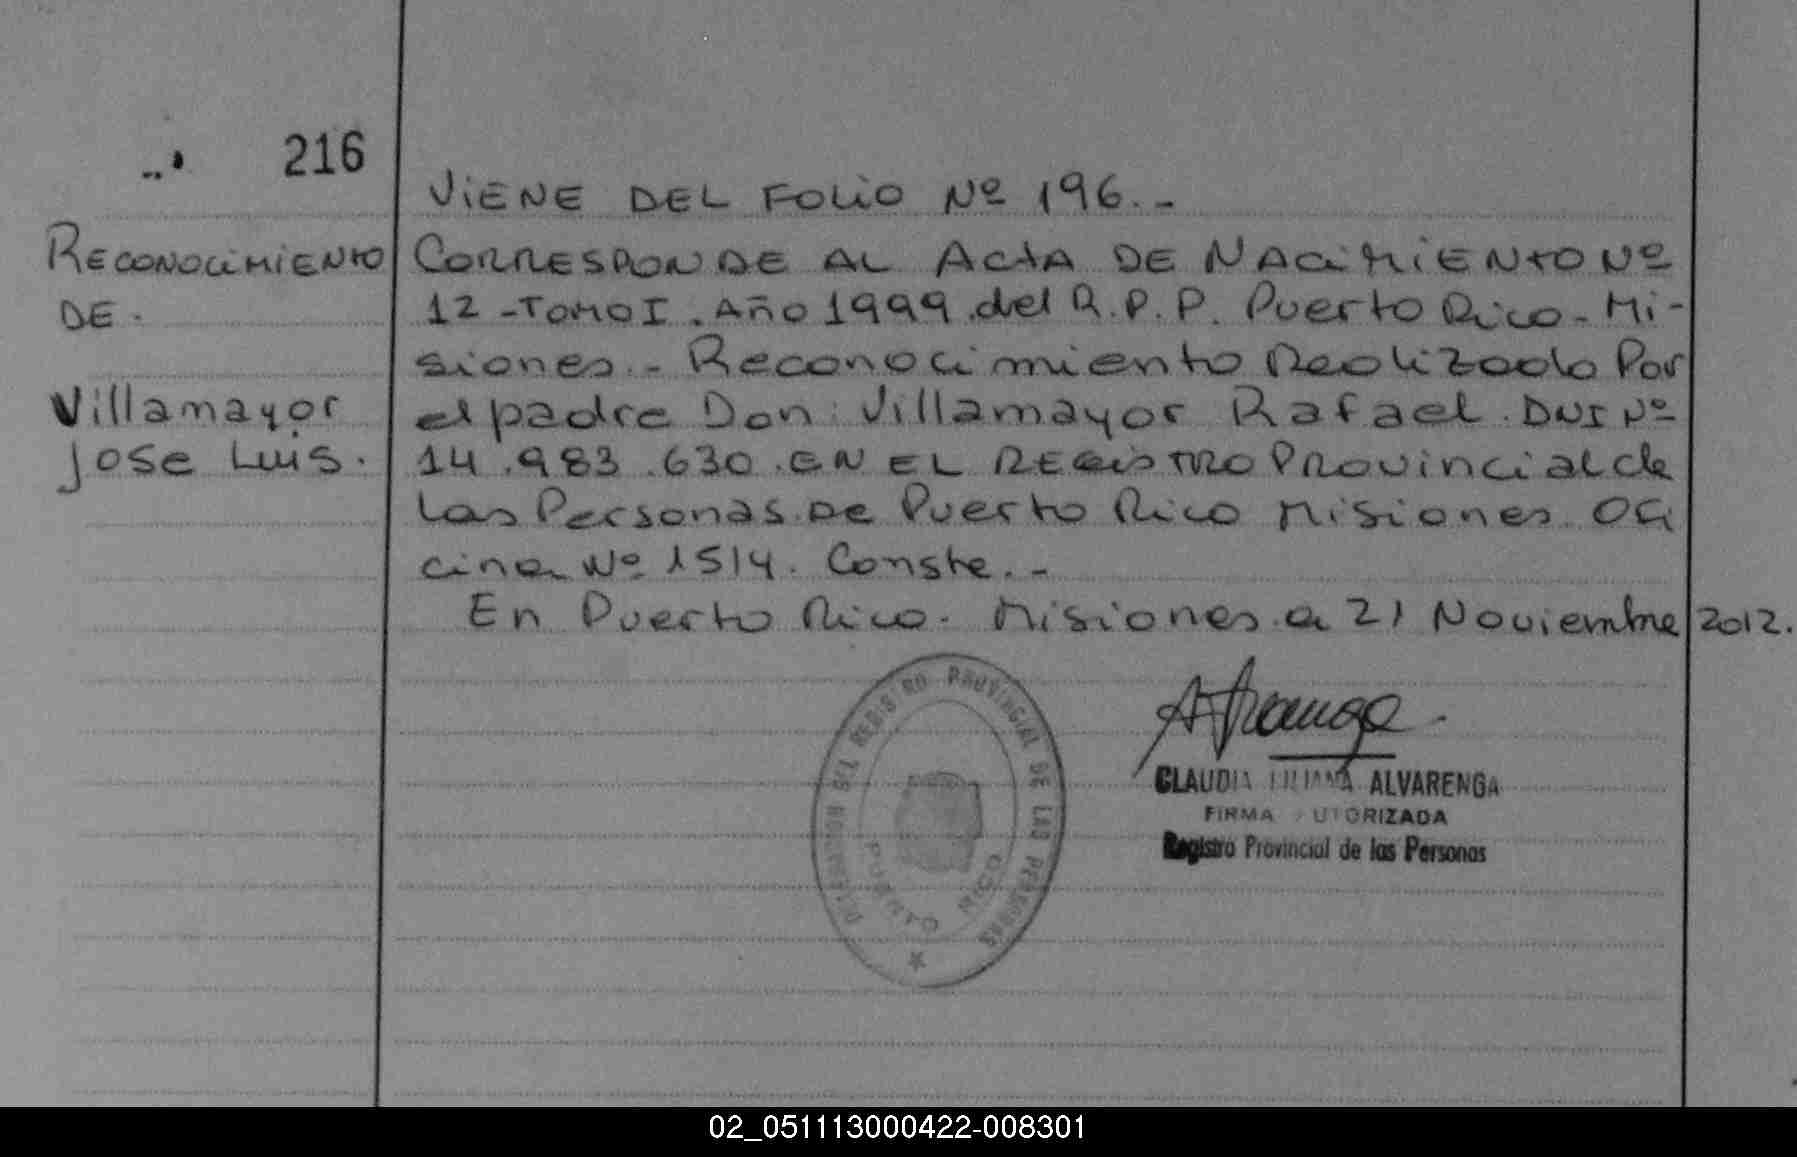 216
RECONOCIMIENTO
DE.
Villamayor
Jose Luis.
VIENE DEL FOLIO Nº 196.-
CORRESPONDE AL ACTA DE NACIMIENTO Nº
12-TOMO I. Año 1999.del R.P.P. Puerto Rico-Mi-
siones.- Reconocimiento Realizado Por
el padre Don: Villamayor Rafael. DNI Nº
14.983.630.EN EL REGISTRO PROVincial de
las Personas.De Puerto Rico Misiones. Ofi
cina Nº 1514. Conste.-
En Puerto Rico. Misiones.a 21 Noviembre 2012.
DELEGACION DEL REGISTRO PROVINCIAL DE LAS PERSONAS
PUERTO RICO
CLAUDIA LILIANA ALVARENGA
FIRMA AUTORIZADA
Registro Provincial de las Personas
02_051113000422-008301